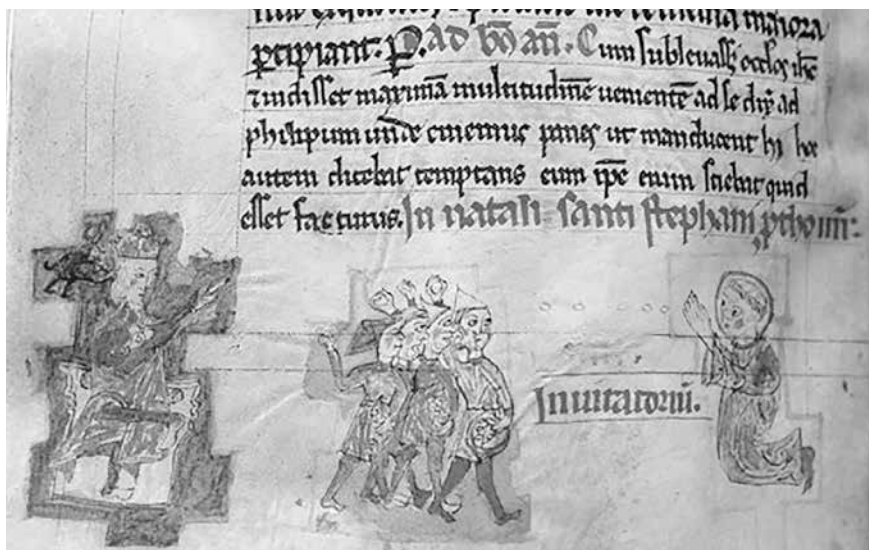 maiora
ꝑcipiant. P. ad bn̄ añ. Cum subleuass; oculos ihc
⁊ uidisset maximā multitudinē uenientē ad se dix̄ ad
philipum unde ememus panes ut manducent hi hoc
autem dicebat temptans eum ip̄e enim sciebat quid
esset facturus. In natali santi stephani ꝓthom̄:
Inuitatoriū.